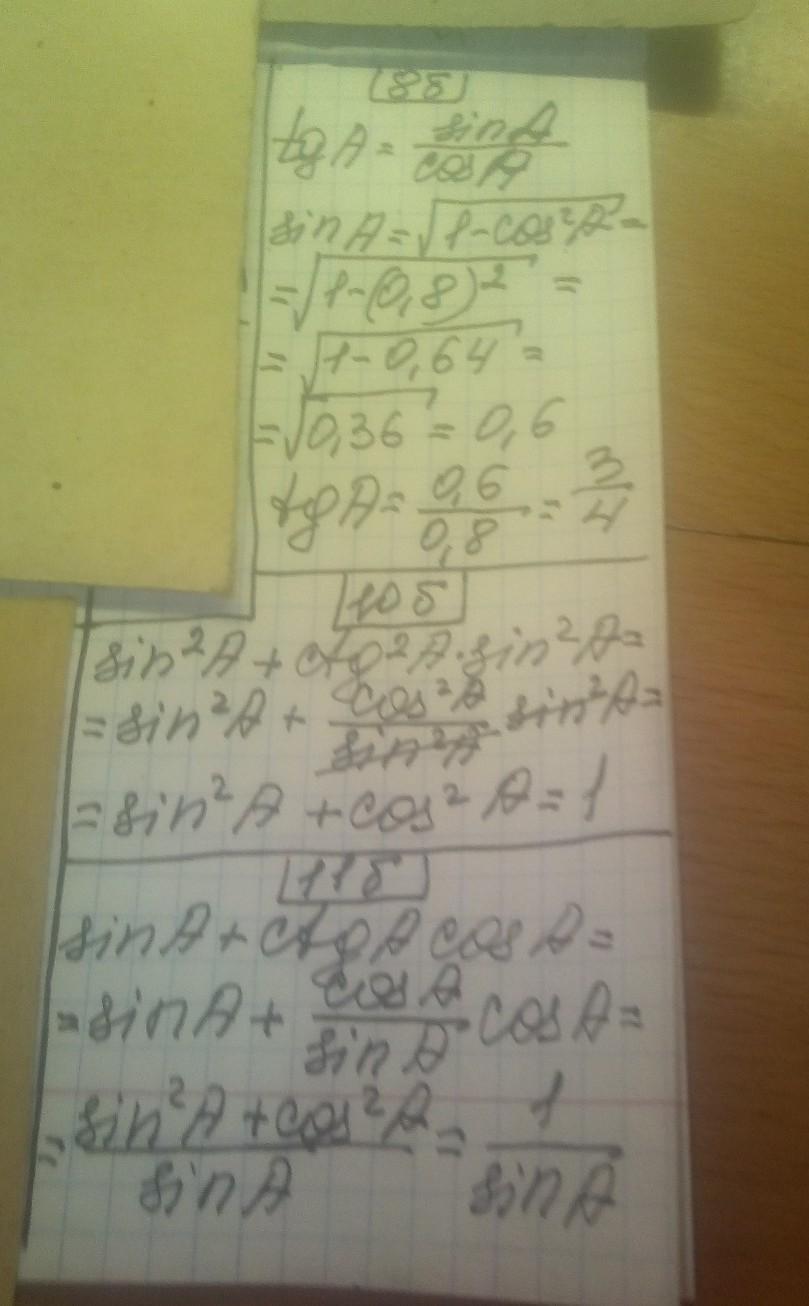 8б
tg A = sin A / cos A
sin A = √(1 - cos²A) =
= √(1 - (0,8)²) =
= √(1 - 0,64) =
= √0,36 = 0,6
tg A = 0,6 / 0,8 = 3/4
10б
sin²A + ctg²A · sin²A =
= sin²A + cos²A / sin²A · sin²A =
= sin²A + cos²A = 1
11б
sin A + ctg A cos A =
= sin A + cos A / sin A cos A =
= (sin²A + cos²A) / sin A = 1 / sin A